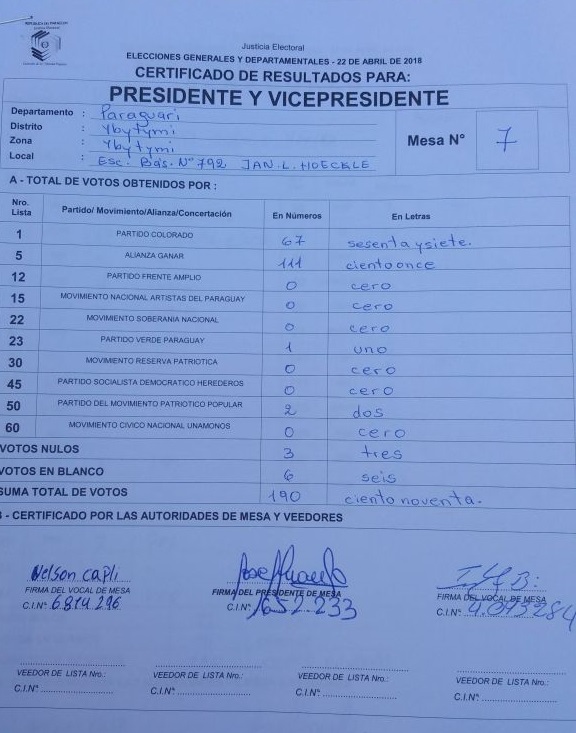 REPUBLICA DEL PARAGUAY
Justicia Electoral
Justicia Electoral
ELECCIONES GENERALES Y DEPARTAMENTALES - 22 DE ABRIL DE 2018
CERTIFICADO DE RESULTADOS PARA:
PRESIDENTE Y VICEPRESIDENTE
Departamento : Paraguari
Distrito : Ybytymi
Zona : Ybytymi
Local : Esc. Bás. N° 792 JAN. L. HOECKLE
Mesa N° 7
A - TOTAL DE VOTOS OBTENIDOS POR :
Nro. Lista Partido/ Movimiento/Alianza/Concertación En Números En Letras
1 PARTIDO COLORADO 67 sesenta y siete.
5 ALIANZA GANAR 111 ciento once
12 PARTIDO FRENTE AMPLIO 0 cero
15 MOVIMIENTO NACIONAL ARTISTAS DEL PARAGUAY 0 cero
22 MOVIMIENTO SOBERANIA NACIONAL 0 cero
23 PARTIDO VERDE PARAGUAY 1 uno
30 MOVIMIENTO RESERVA PATRIOTICA 0 cero
45 PARTIDO SOCIALISTA DEMOCRATICO HEREDEROS 0 cero
50 PARTIDO DEL MOVIMIENTO PATRIOTICO POPULAR 2 dos
60 MOVIMIENTO CIVICO NACIONAL UNAMONOS 0 cero
VOTOS NULOS 3 tres
VOTOS EN BLANCO 6 seis
SUMA TOTAL DE VOTOS 190 ciento noventa.
- CERTIFICADO POR LAS AUTORIDADES DE MESA Y VEEDORES
Nelson Capli
FIRMA DEL VOCAL DE MESA FIRMA DEL PRESIDENTE DE MESA FIRMA DEL VOCAL DE MESA
C.I.Nº 6.814.296 C.I.Nº 1652.233 C.I.Nº 4.093284
VEEDOR DE LISTA Nro.: VEEDOR DE LISTA Nro.: VEEDOR DE LISTA Nro.: VEEDOR DE LISTA Nro.:
C.I.Nº C.I.Nº C.I.Nº C.I.Nº